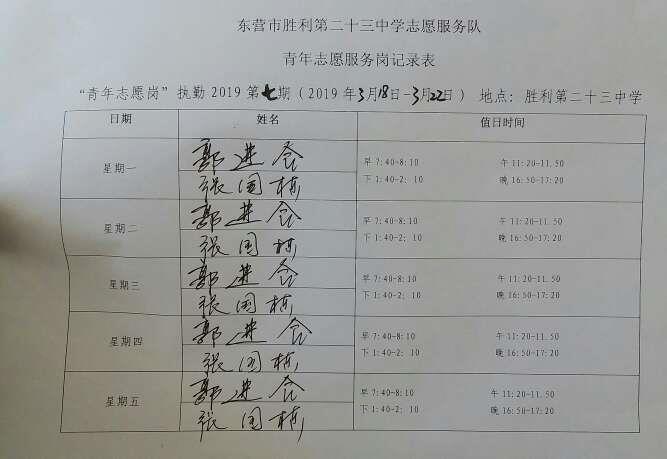 东营市胜利第二十三中学志愿服务队
青年志愿服务岗记录表
“青年志愿岗”执勤2019第七期（2019年3月18日-3月22日） 地点：胜利第二十三中学
日期 姓名 值日时间
星期一 郭进 早7:40-8:10 午11:20-11.50
张国栋 下1:40-2：10 晚16:50-17:20
星期二 郭进 早7:40-8:10 午11:20-11.50
张国栋 下1:40-2：10 晚16:50-17:20
星期三 郭进 早7:40-8:10 午11:20-11.50
张国栋 下1:40-2：10 晚16:50-17:20
星期四 郭进 早7:40-8:10 午11:20-11.50
张国栋 下1:40-2：10 晚16:50-17:20
星期五 郭进 早7:40-8:10 午11:20-11.50
张国栋 下1:40-2：10 晚16:50-17:20